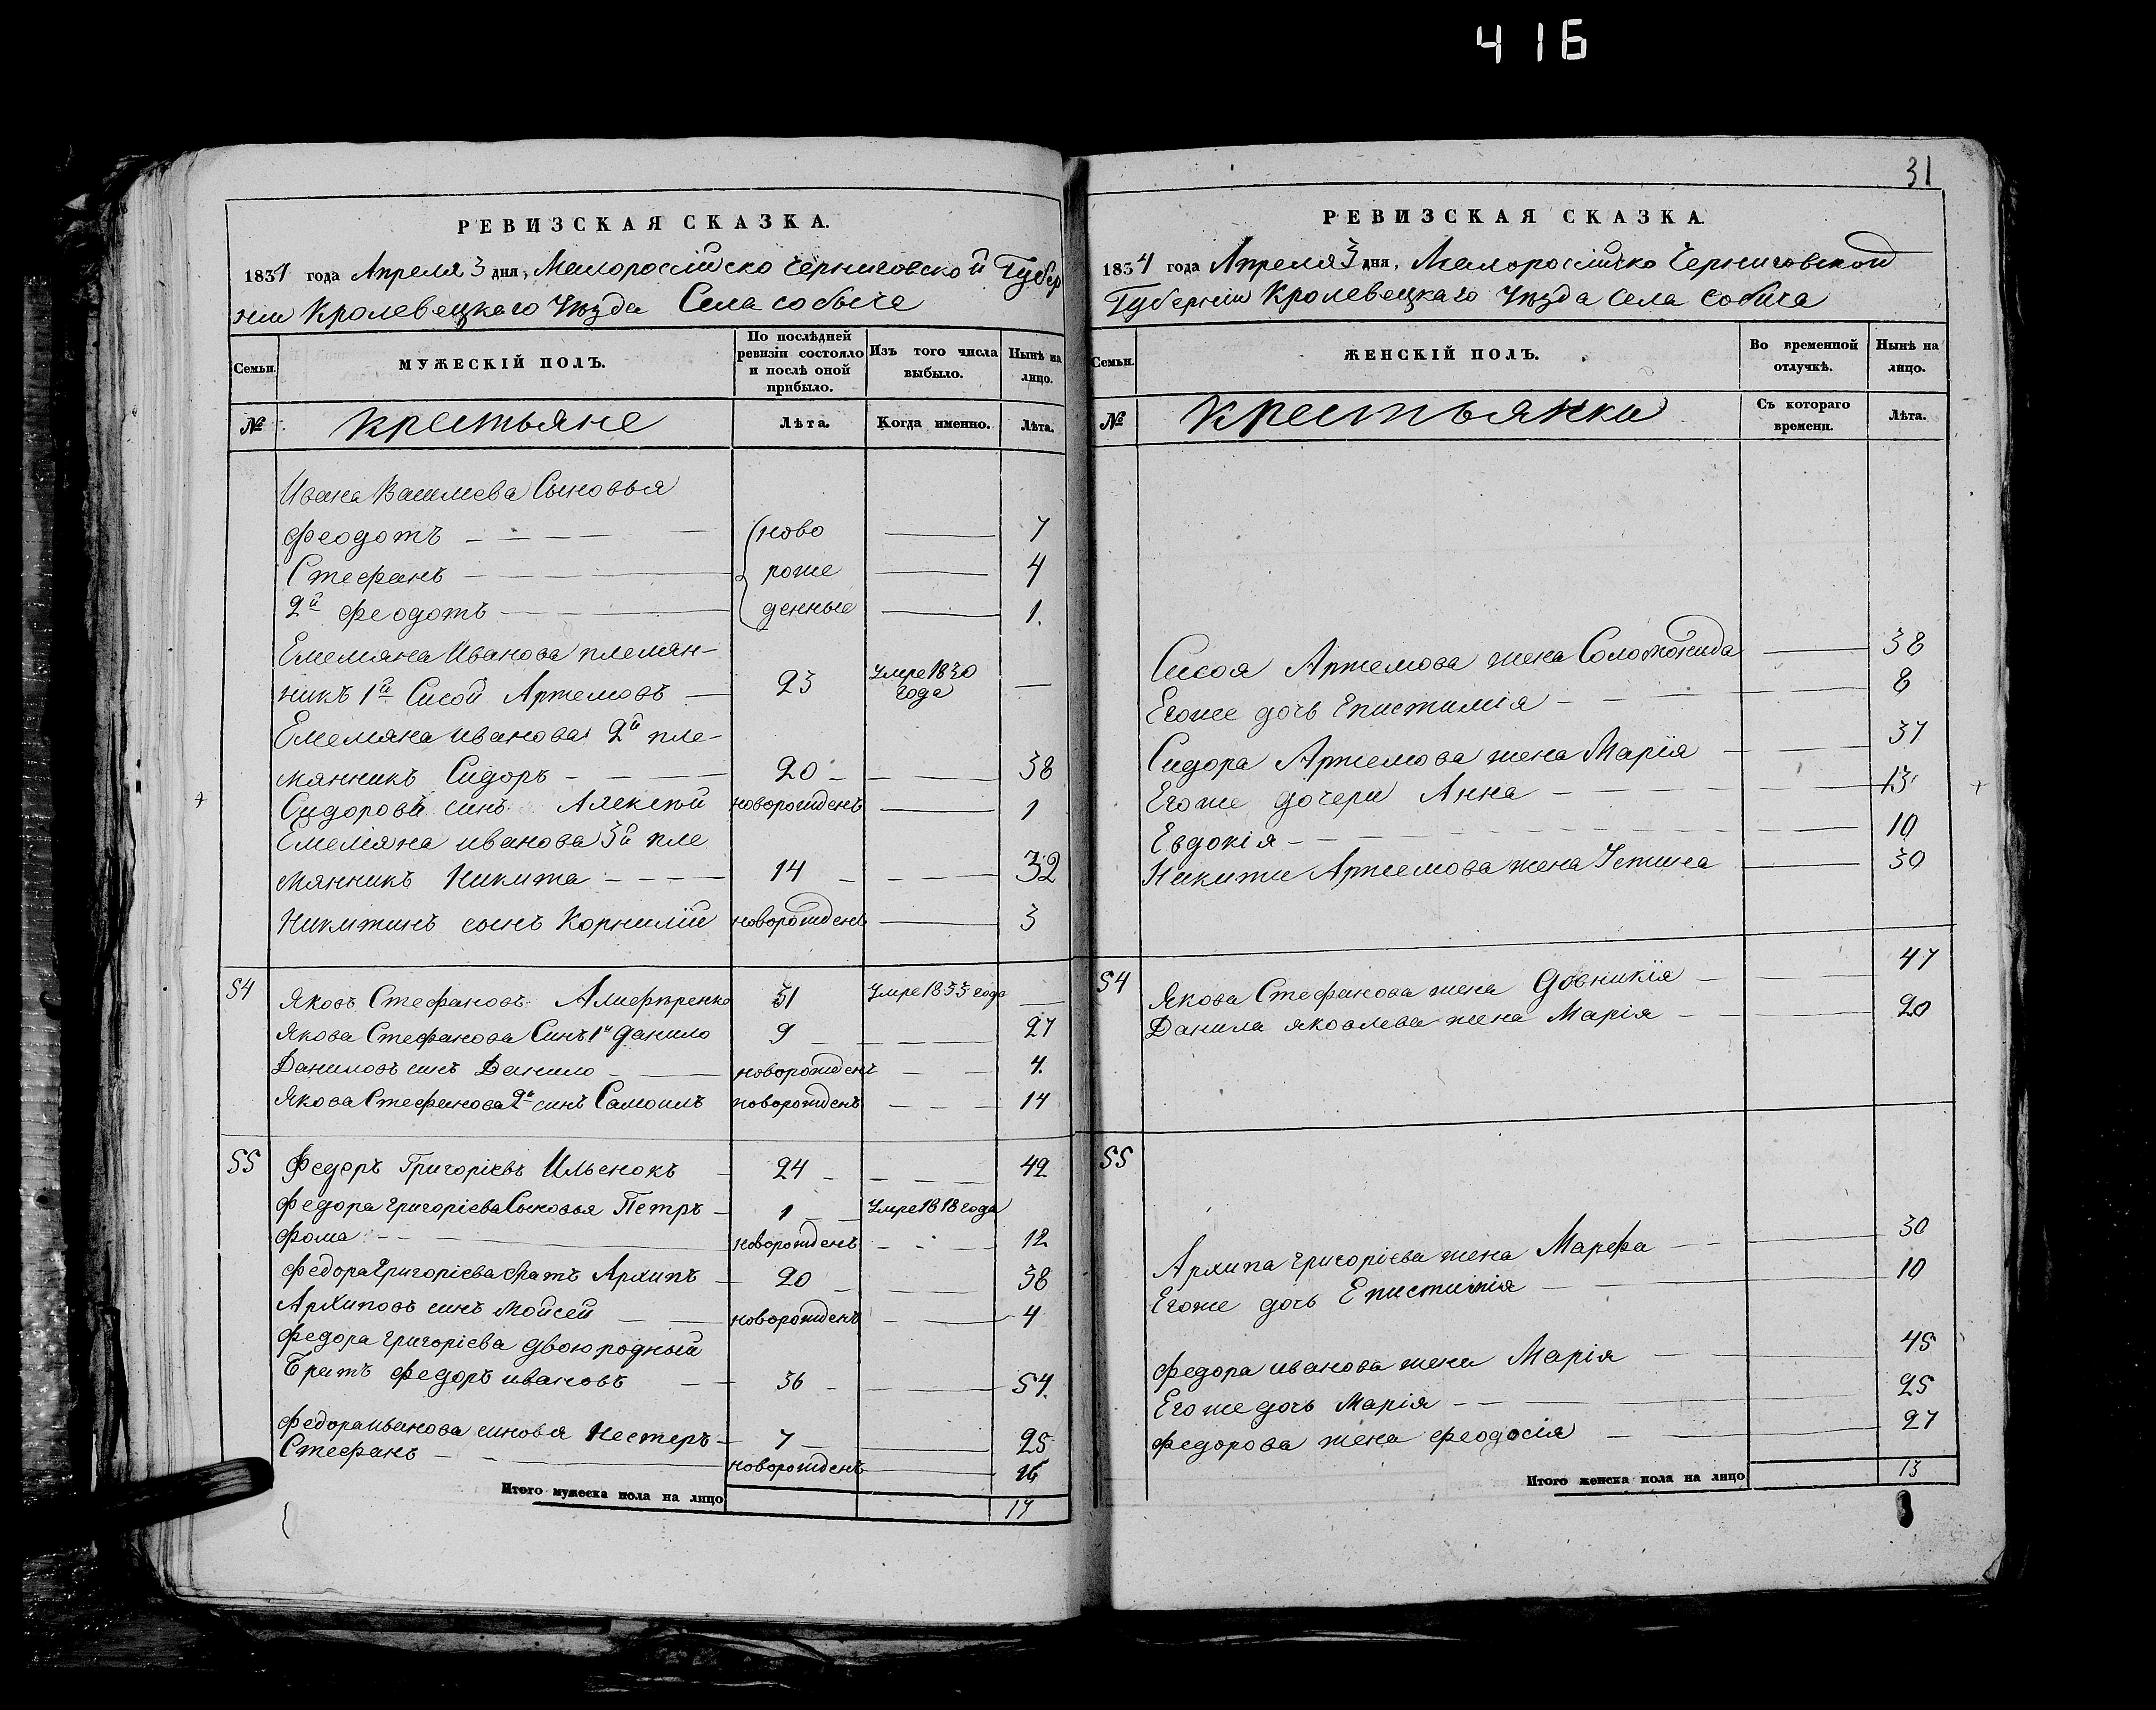 416
РЕВИЗСКАЯ СКАЗКА.
1834 года Апреля 3 дня, Малороссійско Черниговской Губер
ніи Кролевецкаго Уѣзда Села собыча
Семьи.
МУЖЕСКІЙ ПОЛЪ.
По послѣдней ревизіи состояло и послѣ оной прибыло.
Изъ того числа выбыло.
Нынѣ на лицо.
№
крестьяне
Лѣта.
Когда именно.
Лѣта.
Ивана Василиева Сыновья
феодотъ ново 7
Стефанъ роже 4
2й феодотъ денные 1.
Емеляна Иванова племян-
никъ 1й Сисой Артемовъ 23 Умре 1830 года
Емеляна иванова 2й пле-
мянникъ Сидоръ 20 38
Сидоровъ синъ Алексѣй новорожденъ 1
Емеляна иванова 3й пле
мянникъ Никита 14 32
Никитинъ сынъ Корнилій новорожденъ 3
54 Яковъ Стефановъ 31 Умре 1833 года
Якова Стефанова Синъ 1й Данило 9 27
Даниловъ синъ Данило новорожденъ 4.
Якова Стефанова 2й синъ Самоилъ новорожденъ 14
55 Федоръ Григоріевъ Ильенокъ 24 42
федора григоріева Сыновья Петръ 1 Умре 1818 года
фома новорожденъ 12
федора Григоріева братъ Архипъ 20 38
Архиповъ синъ Мойсей новорожденъ 4
федора григоріева двоюродный
братъ федоръ ивановъ 36 54.
федора иванова синовья Нестеръ 7 25
Стефанъ новорожденъ 16
Итого мужеска пола на лицо 17
31
РЕВИЗСКАЯ СКАЗКА.
1834 года Апреля 3 дня, Малороссійско Черниговской
Губерніи Кролевецкаго Уѣзда Села Собича
Семьи.
ЖЕНСКІЙ ПОЛЪ.
Во временной отлучкѣ.
Нынѣ на лицо.
№
крестьянки
Съ котораго времени.
Лѣта.
Сисоя Артемова жена Соломонида 38
Егоже дочь Епистимія 8
Сидора Артемова жена Марія 37
Егоже дочери Анна 13
Евдокія 10
Никити Артемова жена 30
54 Якова Стефанова жена 47
Данила яковлева жена Марія 20
55
Архипа григоріева жена Марфа 30
Егоже дочь Епистимія 10
федора иванова жена Марія 45
Егоже дочь Марія 25
федорова жена феодосія 27
Итого женска пола на лицо 13